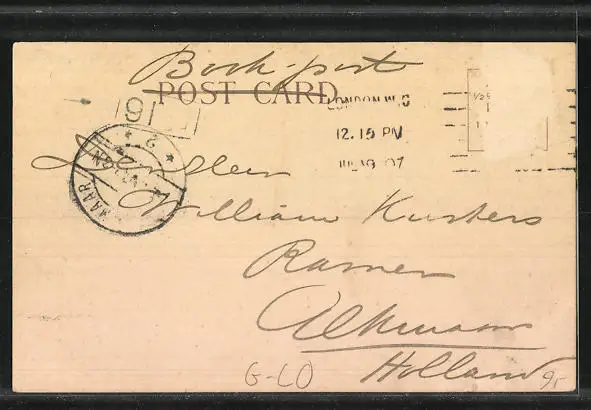 Book-post
POST CARD
LONDON W.C
12.15 PM
JUL 19 07
16
William Kusters
Ramen
Alkmaar
Holland
G-LO
9,-